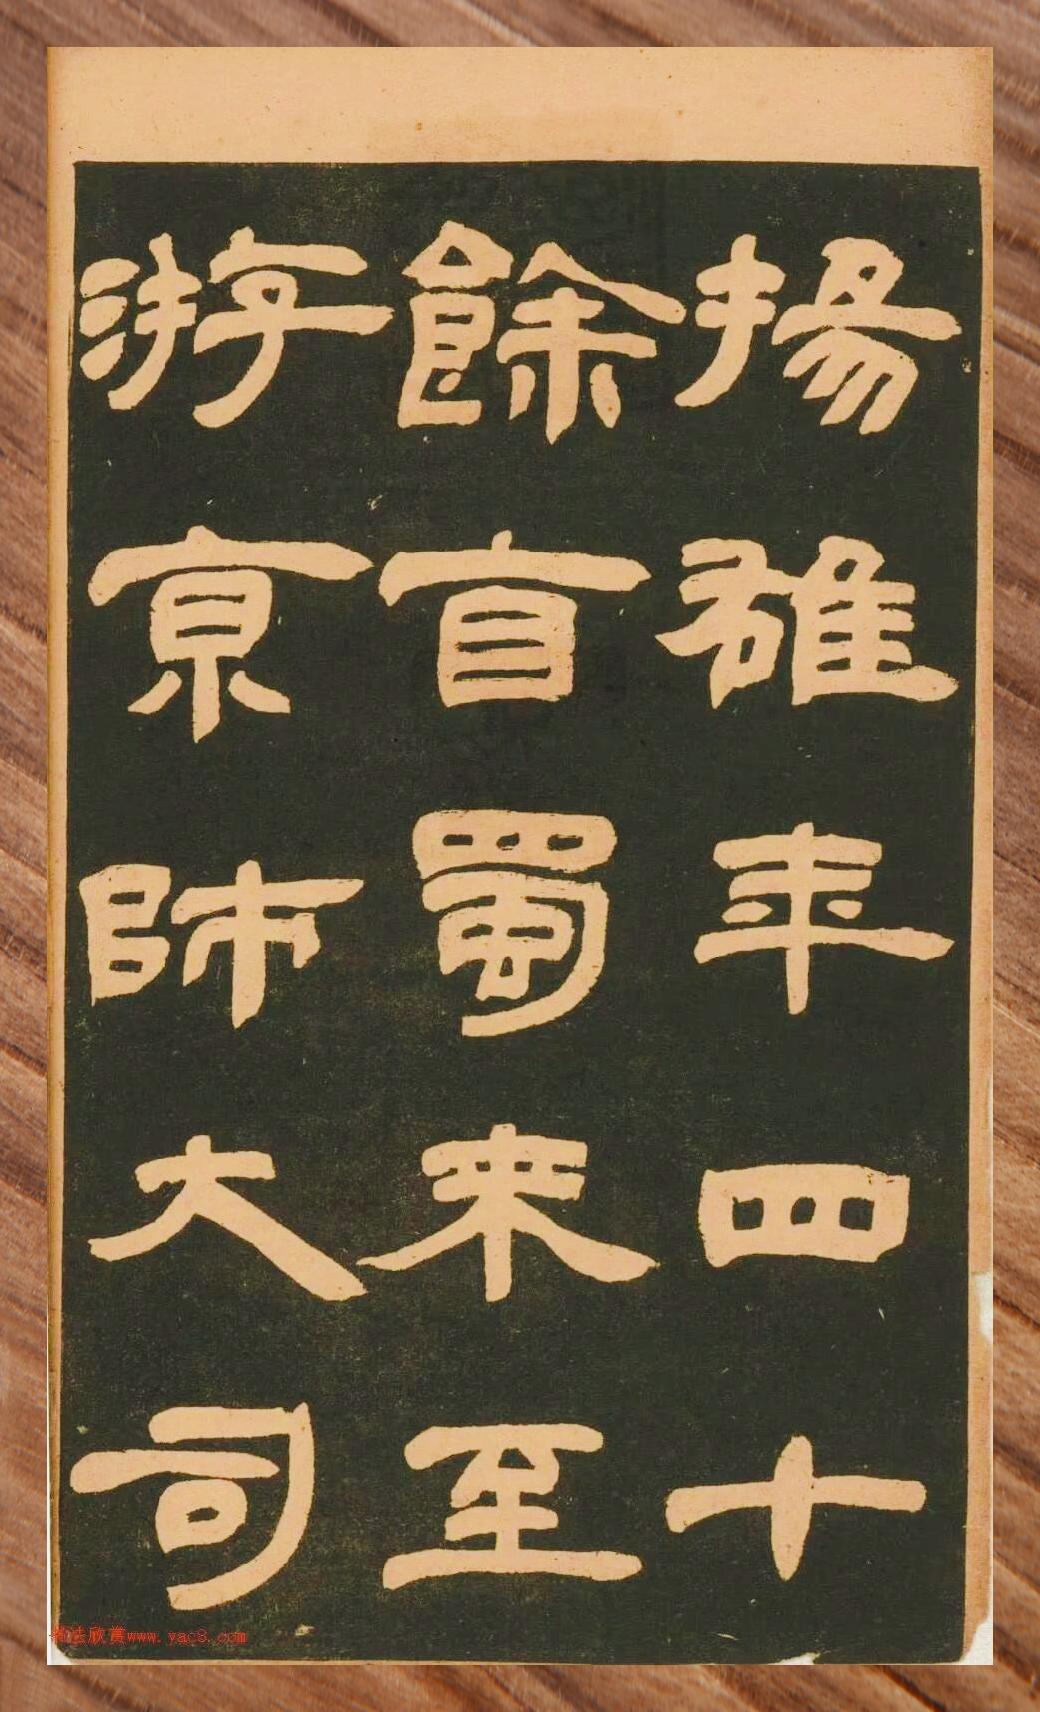 揚雄年四十
餘自蜀來至
游京師大司
書法欣賞www.yac8.com